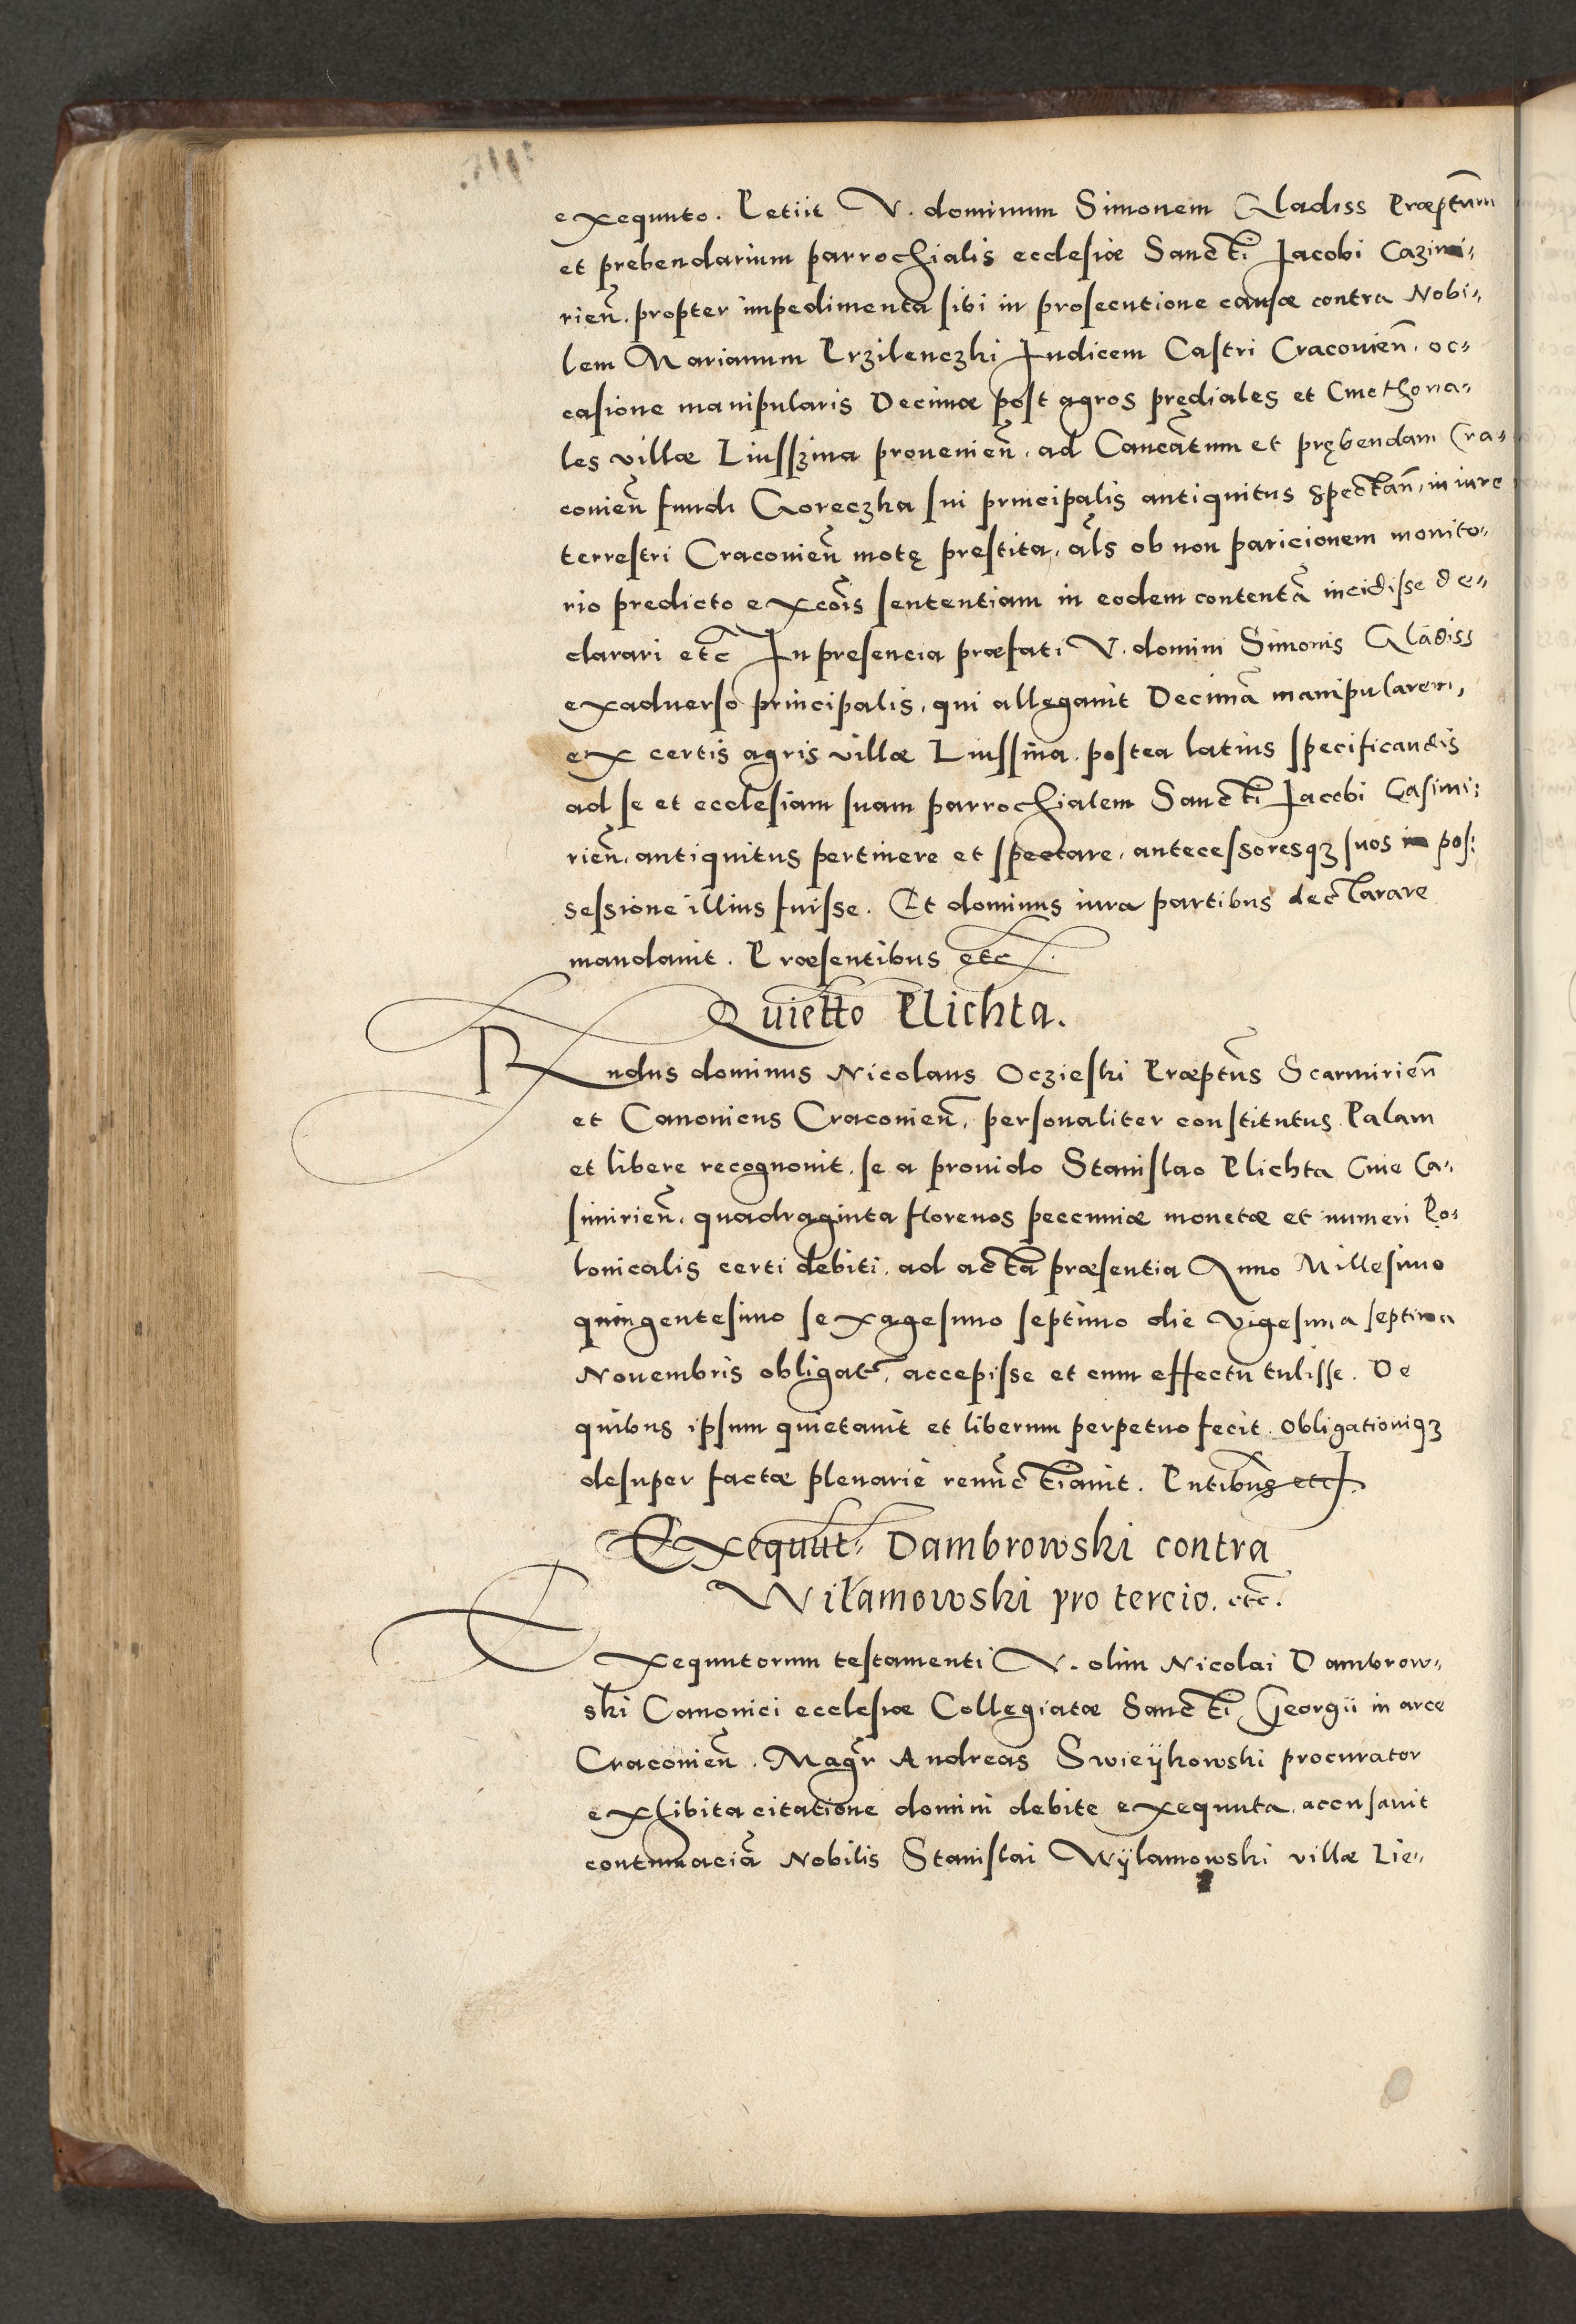 exequuto. Petiit V. dominum Simonem Gladiss Præptum̃
et prebendarium parrochialis ecclesiæ Sancti Jacobi Cazimi-
rieñ. propter impedimenta sibi in prosecutione causæ contra Nobi-
lem Marianum Przilenczki Judicem Castri Cracovieñ. oc-
casione manipularis Decimæ post agros prediales et Cmethona-
les villæ Liusszina provenieñ. ad Cancatum et prębendam Cra-
covieñ fundi Goreczka sui principalis antiquitus spectañ. in iure
terrestri Cracovieñ motę prestita. als ob non paricionem monito-
rio predicto excois sententiam in eodem contentã incidisse de-
clarari etc̃ In presencia præfati V. domini Simonis Gladiss
exadverso principalis, qui allegavit Decimã manipularem,
ex certis agris villæ Liussina. postea latius specificandis
ad se et ecclesiam suam parrochialem Sancti Jacobi Casimi-
rieñ. antiquitus pertinere et spectare, antecessoresqꝫ suos in pos-
sessione illius fuisse. Et dominus iura partibus declarare
mandavit. Præsentibus etc.
Quietto Plichta.
Rndus dominus Nicolaus Oczieski Præptus̃ Scarmirieñ
et Canonicus Cracovieñ, personaliter constitutus. Palam
et libere recognovit. se a provido Stanislao Plichta Cive Ca-
simirieñ. quadraginta florenos pecuniæ monetæ et numeri Po-
lonicalis certi debiti. ad acta præsentia Anno Millesimo
quingentesimo sexagesimo septimo die vigesima septima
Novembris obligat̃. accepisse et cum effectu tulisse. De
quibus ipsum quietavit et liberum perpetuo fecit. Obligationiqꝫ
desuper factæ plenarie renunctiavit. Pntibus etc.
Exequut. Dambrowski contra
Wilamowski pro tercio. etc̃.
Exequutorum testamenti V. olim Nicolai Dambrow-
ski Canonici ecclesiæ Collegiatæ Sancti Georgii in arce
Cracovieñ. Magr̃ Andreas Swieÿkowski procurator
exhibita citatione domini debite exequuta. accusavit
contumaciã Nobilis Stanislai Wÿlamowski villæ Lie-